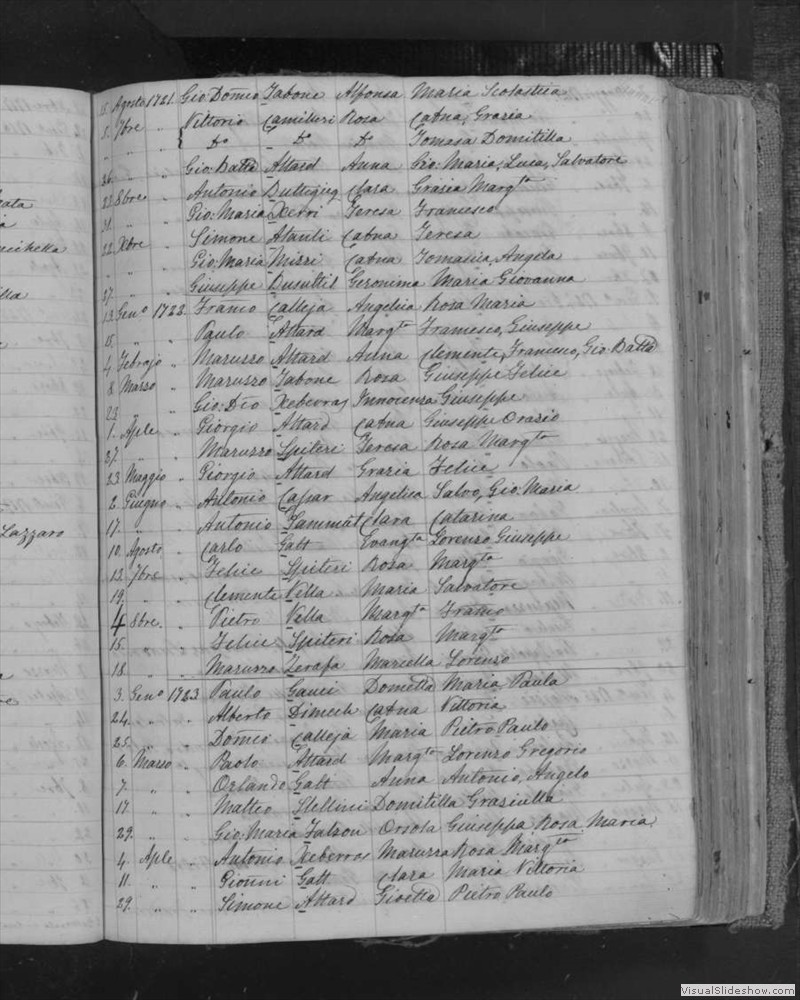 15. Agosto 1721. Gio: Domco Zabone Alfonsa Maria Scolastica
5. 7bre " Vittorio Camilleri Rosa Catna, Grazia
" " do do do Tomasa Domitilla
26. " Gio: Batta Attard Anna Gio: Maria, Lucas, Salvatore
23. 8bre " Antonio Buttigieg Clara Grazia Margta
31. " " Gio: Maria Xerri Teresa Francesco
22. Xbre " Simone Catna Teresa
" " Gio: Maria Mizzi Catna Tomasia, Angela
27. " " Giuseppe Busuttil Geronima Maria Giovanna
13. Geno 1722. Franco Calleja Angelica Rosa Maria
15. " " Paulo Attard Margta Francesco, Giuseppe
4. Febrajo " Maruzzo Attard Anna Clemente, Francesco, Gio: Batta
8. Marzo " Maruzzo Zabone Rosa Giuseppe Felice
23. " Gio: Dco Xeberras Innocenza Giuseppe
1. Aple " Giorgio Attard Catna Giuseppe Orazio
27. " " Maruzzo Spiteri Teresa Rosa Margta
23. Maggio " Giorgio Attard Grazia Felice
2. Giugno " Antonio Caspar Angelica Salvo, Gio: Maria
17. " " Antonio Sammut Clara Catarina
10. Agosto " Carlo Gatt Evangta Lorenzo Giuseppe
12. 7bre " Felice Spiteri Rosa Margta
19. " " Clemente Villa Maria Salvatore
4 8bre. " Pietro Vella Margta Franco
15. " " Felice Spiteri Rosa Margta
18. " " Maruzzo Zerafa Marcella Lorenzo
3. Geno 1723 Paulo Gauci Dometta Maria, Paula
24. " " Alberto Dimech Catna Vittoria
25. " " Domco Calleja Maria Pietro Paulo
6. Marzo " Paolo Attard Margta Lorenzo Gregorio
7. " " Orlando Gatt Anna Antonio, Angelo
17. " " Matteo Stellini Domitilla Graziulla
29. " " Gio: Maria Falzon Orsola Giuseppa, Rosa, Maria
4. Aple " Antonio Xeberras Maruzza Rosa Margta
11. " " Gionni Gatt Clara Maria Vittoria
29. " " Simone Attard Gioetta Pietro Paulo
Lazzaro
VisualSlideshow.com